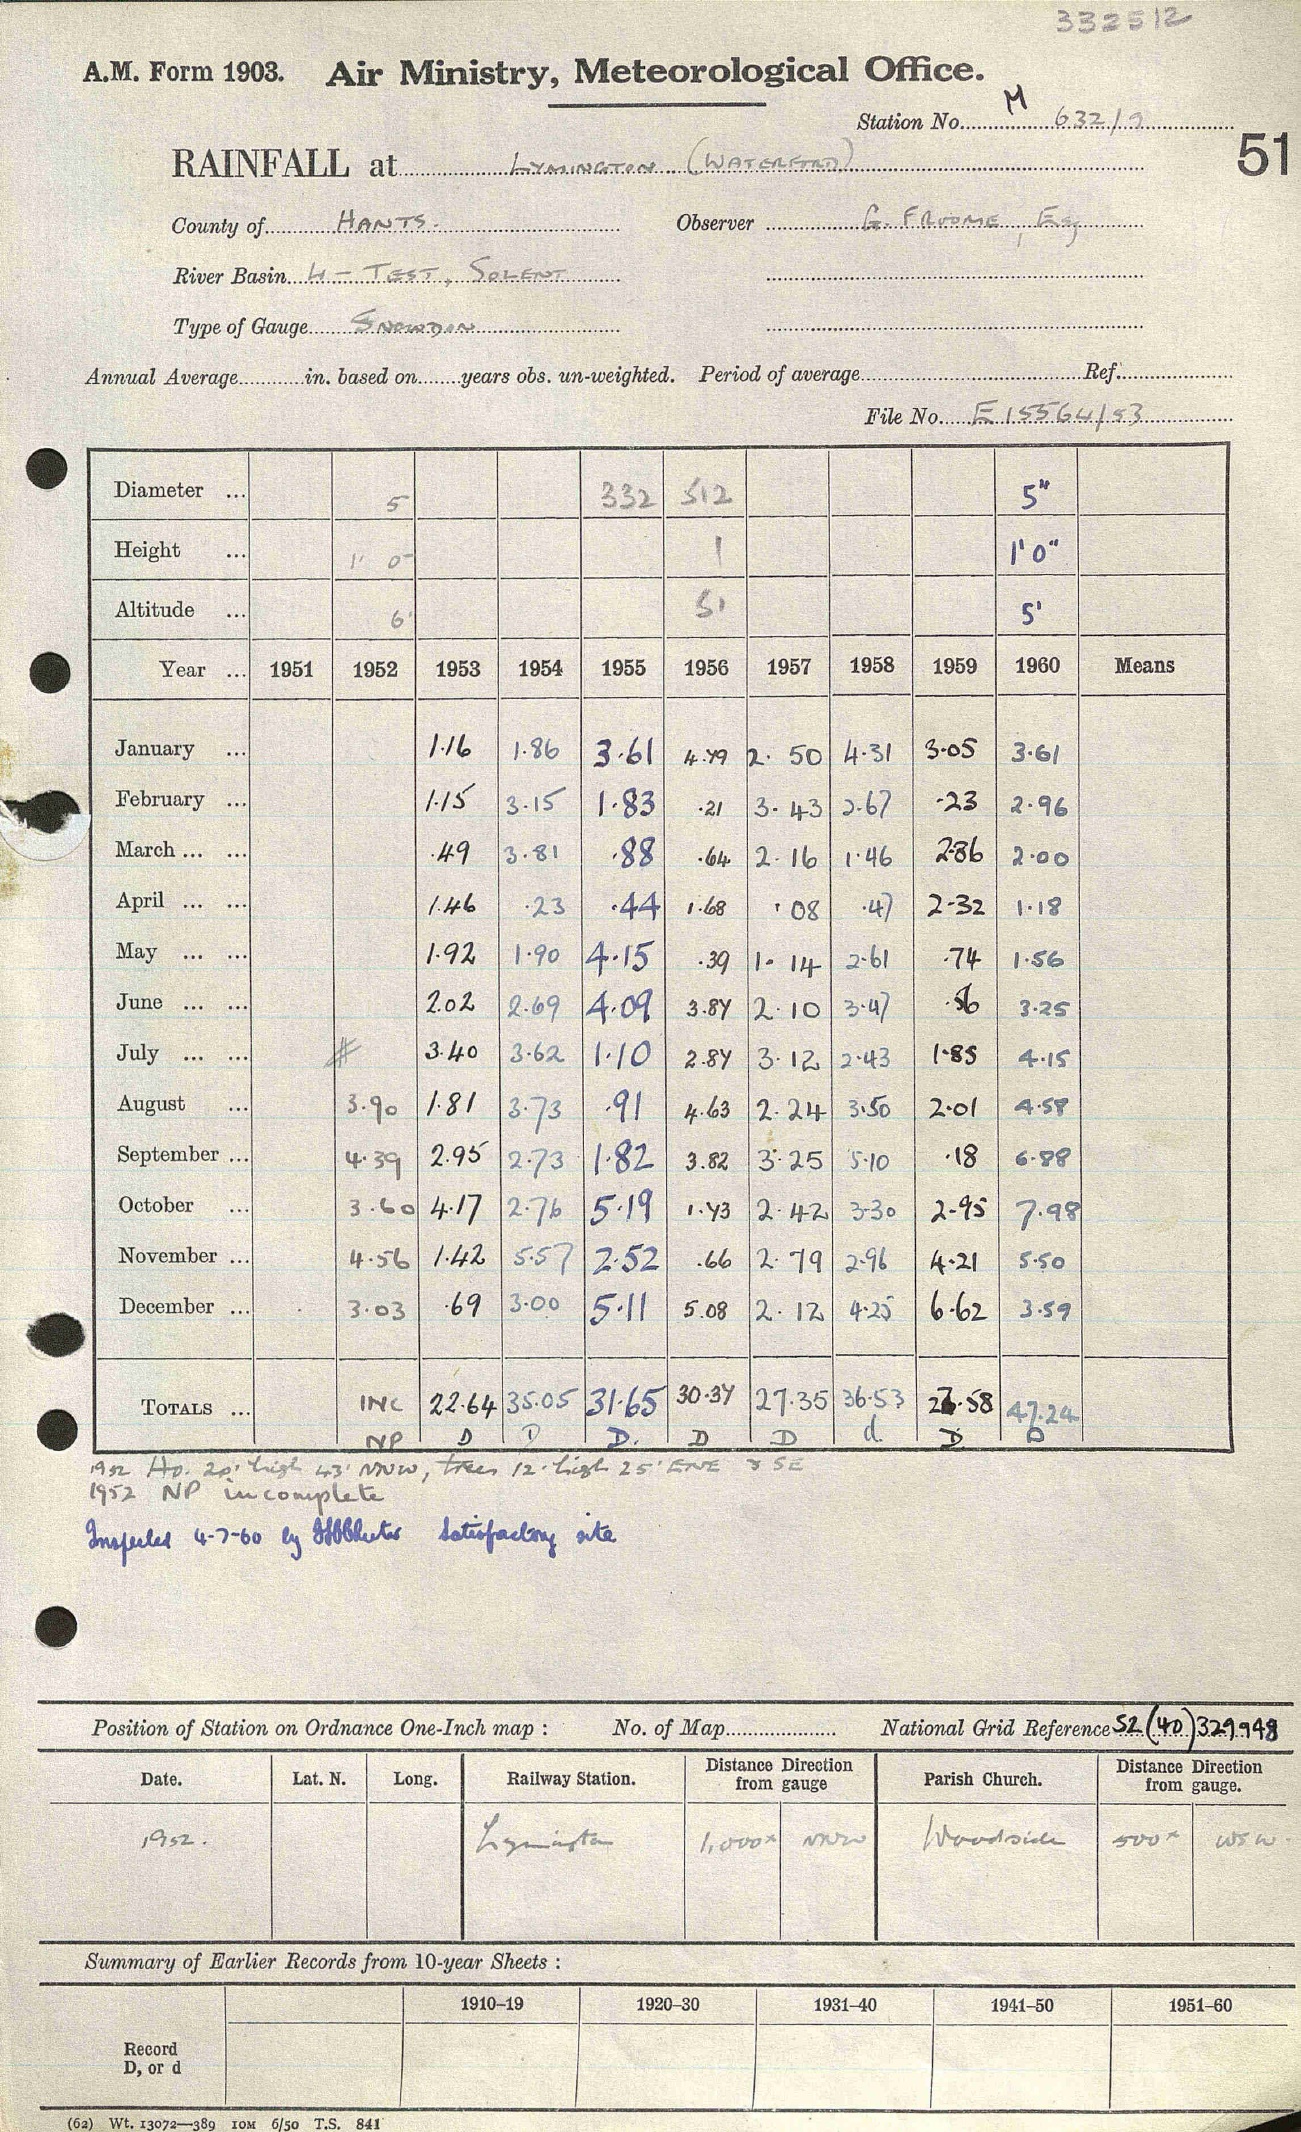 332512
A.M. Form 1903. Air Ministry, Meteorological Office.
Station No. M 632/9
51
RAINFALL at LYMINGTON (WATERFORD)
County of HANTS. Observer G. FROOME, Esq
River Basin 4 - TEST, SOLENT
Type of Gauge SNOWDON
Annual Average in. based on years obs. un-weighted. Period of average Ref.
File No. E 15564/53
Diameter ... 5 332 512 5"
Height ... 1' 0" 1 1' 0"
Altitude ... 6' 51 5'
Year ... 1951 1952 1953 1954 1955 1956 1957 1958 1959 1960 Means
January ... 1.16 1.86 3.61 4.79 2.50 4.31 3.05 3.61
February ... 1.15 3.15 1.83 .21 3.43 2.67 .23 2.96
March ... ... .49 3.81 .88 .64 2.16 1.46 2.86 2.00
April ... ... 1.46 .23 .44 1.68 .08 .47 2.32 1.18
May ... ... 1.92 1.90 4.15 .39 1.14 2.61 .74 1.56
June ... ... 2.02 2.69 4.09 3.87 2.10 3.47 .56 3.25
July ... ... # 3.40 3.62 1.10 2.87 3.12 2.43 1.85 4.15
August ... 3.90 1.81 3.73 .91 4.63 2.24 3.50 2.01 4.58
September ... 4.39 2.95 2.73 1.82 3.82 3.25 5.10 .18 6.88
October ... 3.60 4.17 2.76 5.19 1.73 2.42 3.30 2.95 7.98
November ... 4.56 1.42 5.57 2.52 .66 2.79 2.96 4.21 5.50
December ... 3.03 .69 3.00 5.11 5.08 2.12 4.25 6.62 3.59
TOTALS ... INC 22.64 35.05 31.65 30.37 27.35 36.53 27.58 47.24
NP D D D. D D d. D D
1952 Ho. 20' high 43' NNW, trees 12' high 25' ENE & SE
1952 NP incomplete
Inspected 4-7-60 by Satisfactory site
Position of Station on Ordnance One-Inch map : No. of Map National Grid Reference SZ (40) 329948
Date. Lat. N. Long. Railway Station. Distance Direction from gauge Parish Church. Distance Direction from gauge.
1952. Lymington 1,000x NNW Woodside 500x WSW.
Summary of Earlier Records from 10-year Sheets :
1910–19 1920–30 1931–40 1941–50 1951–60
Record
D, or d
(62) Wt. 13072—389 10M 6/50 T.S. 841